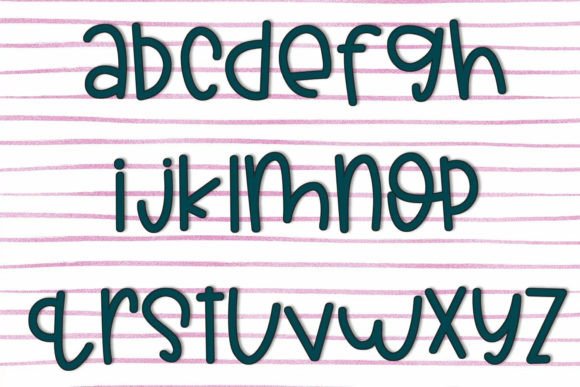 abcdefgh
ijklmnop
qrstuvwxyz